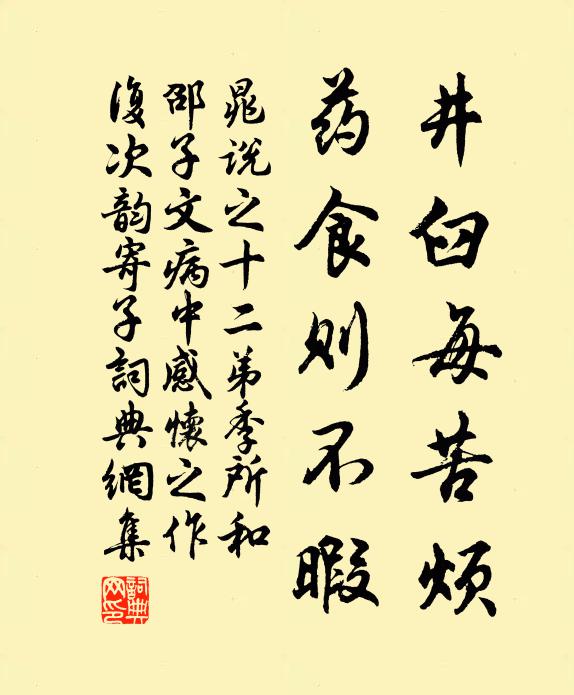 井臼每苦烦
药食则不暇
晁说之十二弟季所和
邵子文病中感懷之作
復次韵寄子詞典網集
詞典网印